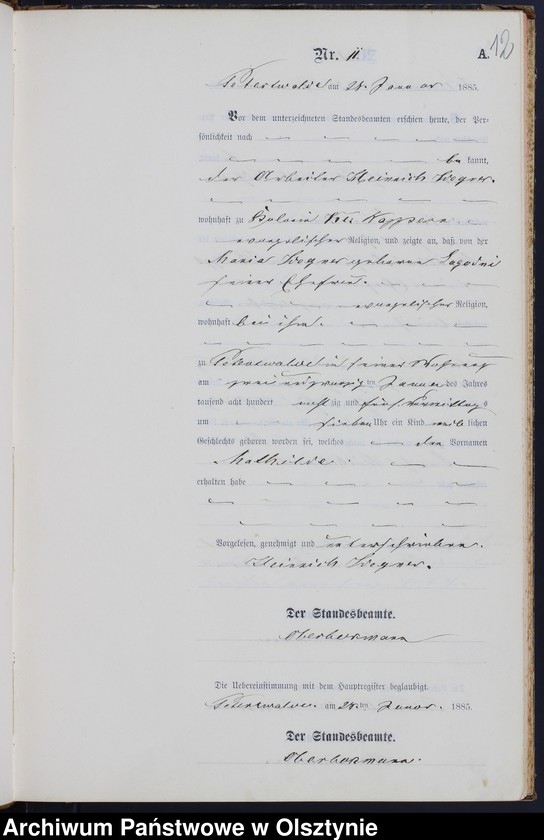 12
Nr. 11 A.
Peterswalde am 24. Januar 1885.
Vor dem unterzeichneten Standesbeamten erschien heute, der Per-
sönlichkeit nach
be kannt,
der Arbeiter Heinrich Wegner.
wohnhaft zu Kolonie
evangelischer Religion, und zeigte an, daß von der
Maria Wegner geborenen
seiner Ehefrau
evangelischer Religion,
wohnhaft bei ihm
zu Peterswalde in seiner Wohnung
am zwei und zwanzig ten Januar des Jahres
tausend acht hundert acht zig und fünf Vormittag s
um sieben Uhr ein Kind weib lichen
Geschlechts geboren worden sei, welches den Vornamen
Mathilde
erhalten habe
Vorgelesen, genehmigt und unterschrieben.
Heinrich Wegner.
Der Standesbeamte.
Die Uebereinstimmung mit dem Hauptregister beglaubigt.
Peterswalde am 24. ten Januar. 1885.
Der Standesbeamte.
Archiwum Państwowe w Olsztynie